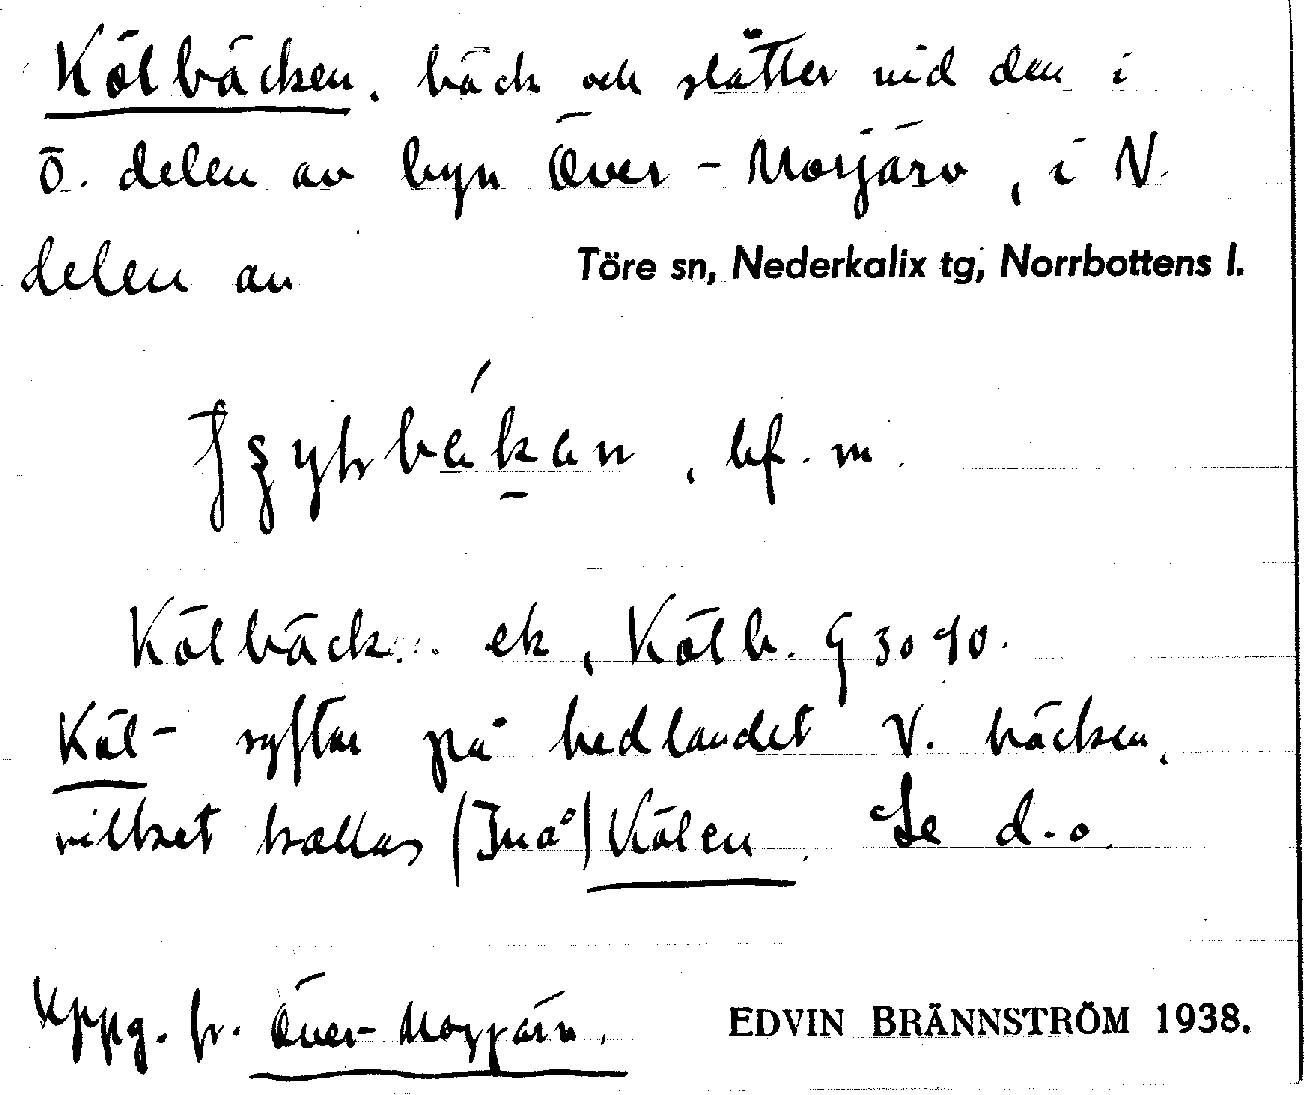 Kölbäcken, bäck och slåtter vid den i
ö. delen av byn Över-Morjärv, i N.
delen av Töre sn, Nederkalix tg, Norrbottens l.
bf. m.
Kölbäck... ek, Kölb. G 3090.
Köl- syftar på hedlandet V. bäcken,
vilket kallas (Inå) Kölen. Se d. o.
Uppg. fr. Över-Morjärv. EDVIN BRÄNNSTRÖM 1938.